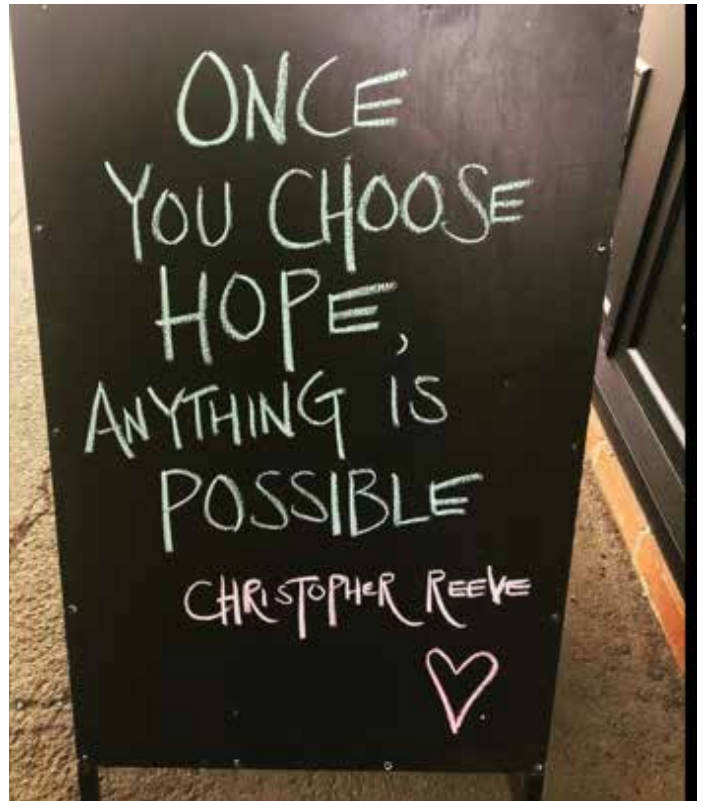 ONCE
YOU CHOOSE
HOPE,
ANYTHING IS
POSSIBLE
CHRISTOPHER REEVE